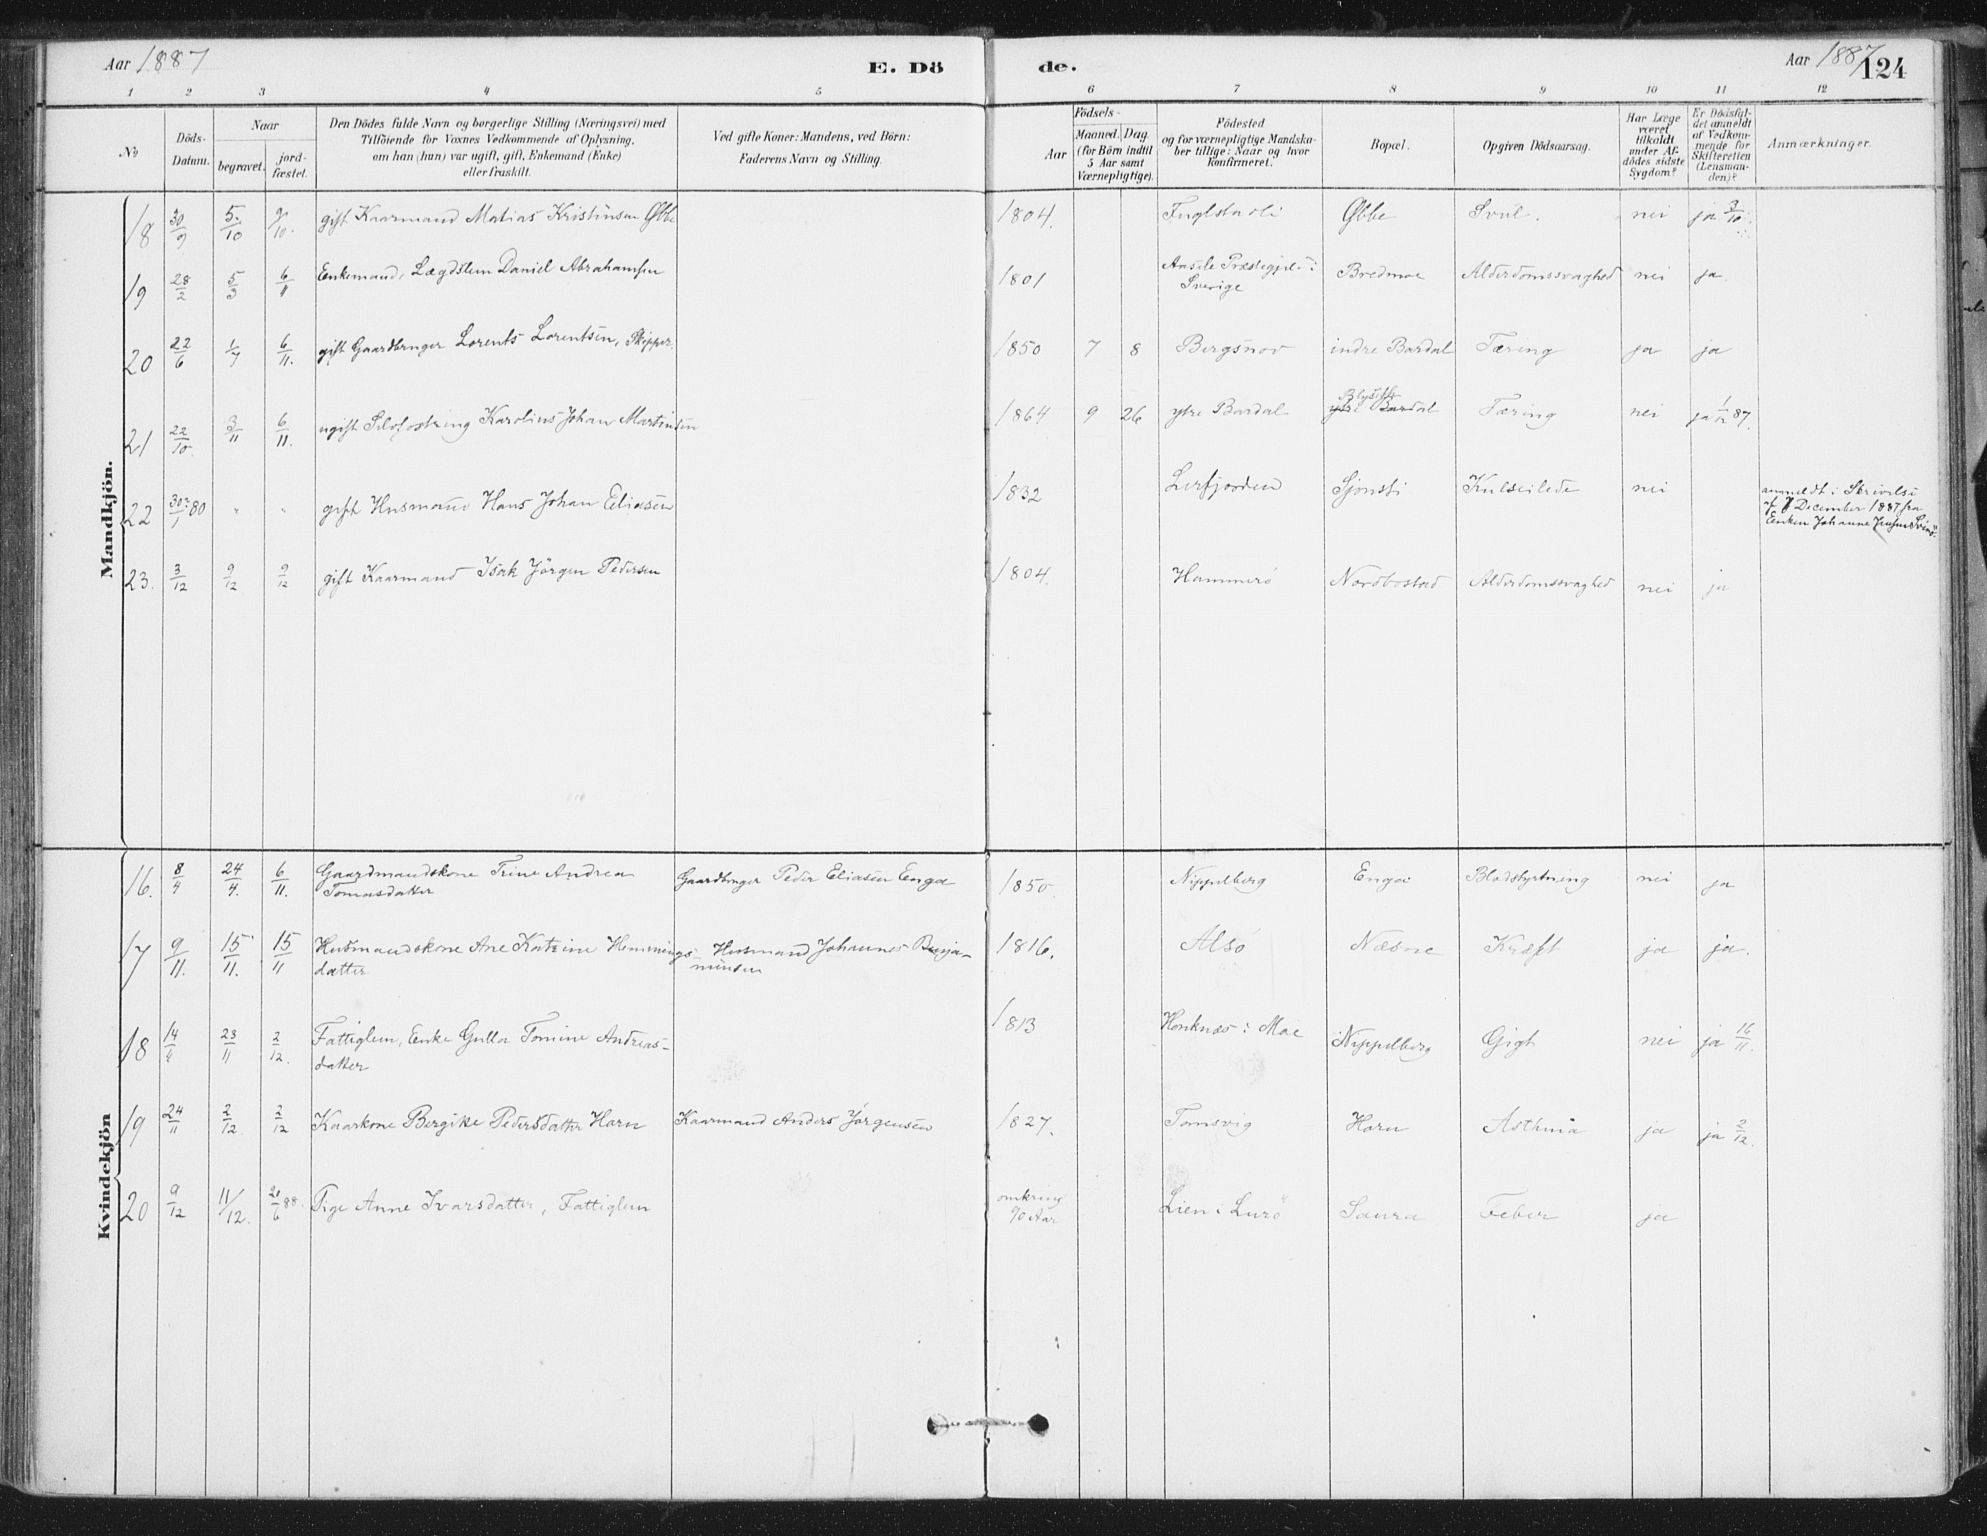 Aar 1887
E. Dö
de.
Aar 1887
124
1 2 3 4 5 6 7 8 9 10 11 12
No
Döds-
Datum.
Naar
begravet.
jord-
fæstet.
Den Dödes fulde Navn og borgerlige Stilling (Næringsvei) med
Tilföiende for Voxnes Vedkommende af Oplysning,
om han (hun) var ugift, gift, Enkemand (Enke)
eller fraskilt.
Ved gifte Koner: Mandens, ved Börn:
Faderens Navn og Stilling.
Födsels-
Aar
Maaned. Dag.
(for Börn indtil
5 Aar samt
Værnepligtige).
Födested
og for værnepligtige Mandska-
ber tillige: Naar og hvor
konfirmeret.
Bopæl.
Opgiven Dödsaarsag.
Har Læge
været
tilkaldt
under Af-
dödes sidste
Sygdom?
Er Dödsfal-
det anmeldt
af Vedkom-
mende for
Skifteretten
(Lensman-
den)?
Anmærkninger.
Mandkjön.
18 30/9 5/10 9/10. gift Kaarmand Matias Kristinsen Øbbe 1804. Øbbe nei ja 3/10
19 28/2 5/3 6/11 Enkemand, Lægdslem Daniel Abrahamsen 1801 Aasele Præstegjeld i Bredmoe Alderdomssvaghed nei ja.
Sverige
20 22/6 1/7 6/11. gift Gaardbruger Lorents Lorentsen, Skipper. 1850 7 8 Bergsnov indre Bardal Tæring ja ja
21 22/10. 3/11 6/11. ugift Karolius Johan Martinsen 1864 9 26 ytre Bardal ytre Bardal Tæring nei ja 1/12 87.
22 30?/1 80 " " gift Husmand Hans Johan Eliasen 1832 Leirfjorden Sjonsti Kulseilede nei
anmeldt i Skrivelse
af 7 December 1887 fra
Enken Johanne
23. 3/12 9/12 9/12 gift Kaarmand Isak Jörgen Pedersen 1804. Hammerö Nordbostad Alderdomssvaghed nei ja
Kvindekjön
16. 8/4 24/4. 6/11. Gaardmandskone Trine Andrea Gaardbruger Peder Eliasen Enga 1850. Nippelberg Enga Blodstyrtning nei ja
Tomasdatter
17 9/11. 15/11. 15/11 Husmandskone Ane Katrine Hemmings- Husmand Johannes Benja- 1816. Alsö Næsne Kræft ja ja.
datter minsen
18 14/11 23/11 2/12. Fattiglem, Enke Gulla Tomine Andreas- 1813 Honknæs i Moe Nippelberg Gigt nei ja 16/11.
datter
19 24/11 2/12. 2/12 Kaarkone Bergike Pedersdatter Horn Kaarmand Anders Jörgensen 1827. Tomsvig Horn Asthma ja ja 2/12.
20 9/12 11/12. 20/6 88. Pige Anne Ivarsdatter, Fattiglem omkring Lien i Lurö Saura Feber ja
90 Aar